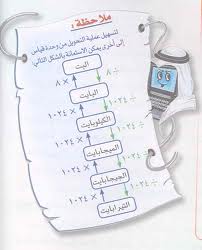 ملاحظة :
لتسهيل عملية التحويل من وحدة قياس
إلى أخرى يمكن الاستعانة بالشكل التالي
البت
٨ × ٨ ÷
البايت
١٠٢٤ × ١٠٢٤ ÷
الكيلوبايت
١٠٢٤ × ١٠٢٤ ÷
الميجابايت
١٠٢٤ × ١٠٢٤ ÷
الجيجابايت
١٠٢٤ × ١٠٢٤ ÷
التيرابايت